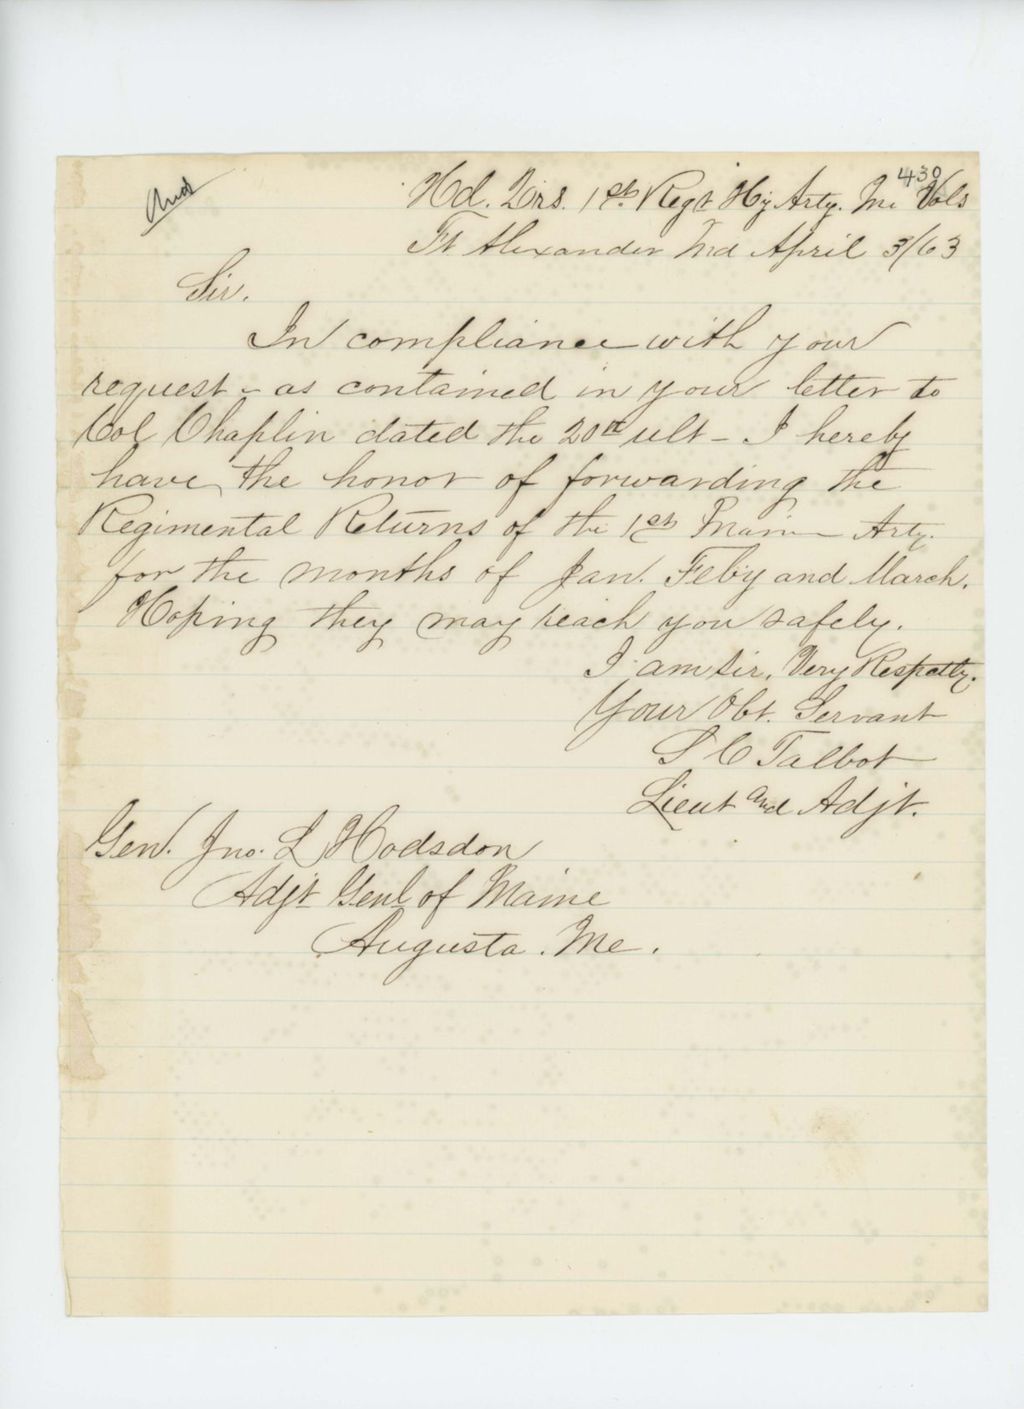 430
Hd. Qrs. 1st. Regt Hy Arty. Me Vols
Ft Alexander Md April 3/63
Sir.
In compliance with your
request - as contained in your letter to
Col Chaplin dated the 20th ult - I hereby
have the honor of forwarding the
Regimental Returns of the 1st Maine Arty.
for the months of Jan. Feby and March.
Hoping they may reach you safely.
I am Sir, Very Respctly.
Your Obt. Servant
S C Talbot
Lieut and Adjt.
Gen. Jno. L Hodsdon
Adjt Genl of Maine
Augusta. Me.